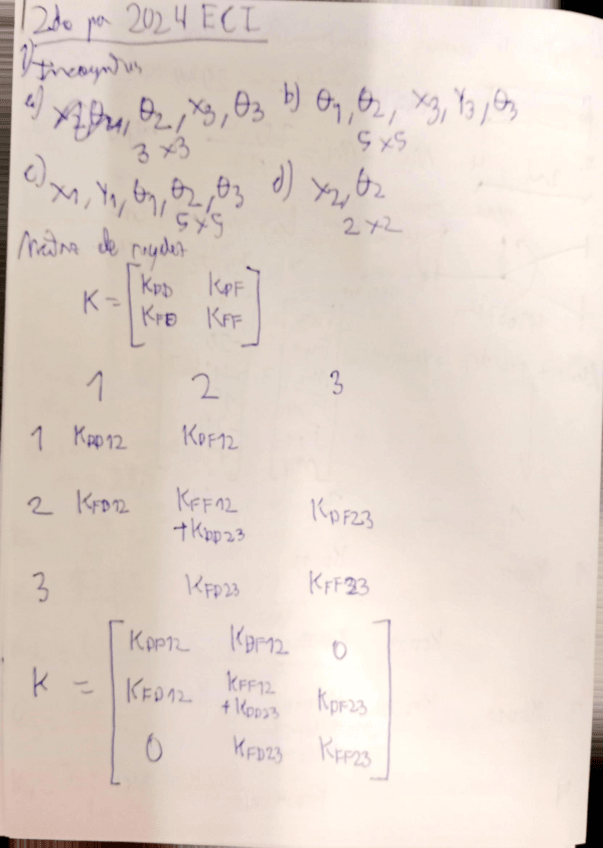 2do pa 2024 ECI
1) Incognitas
a) θ2, x3, θ3 b) θ1, θ2, x3, Y3, θ3
3x3 5x5
c) x1, Y1, θ1, θ2, θ3 d) x2, θ2
5x5 2x2
de
K = [KDD KDF
KFD KFF]
1 2 3
1 KDD12 KDF12
2 KFD12 KFF12 KDF23
+KDD23
3 KFD23 KFF23
KDD12 KDF12 0
K = KFD12 KFF12 KDF23
+KDD23
0 KFD23 KFF23